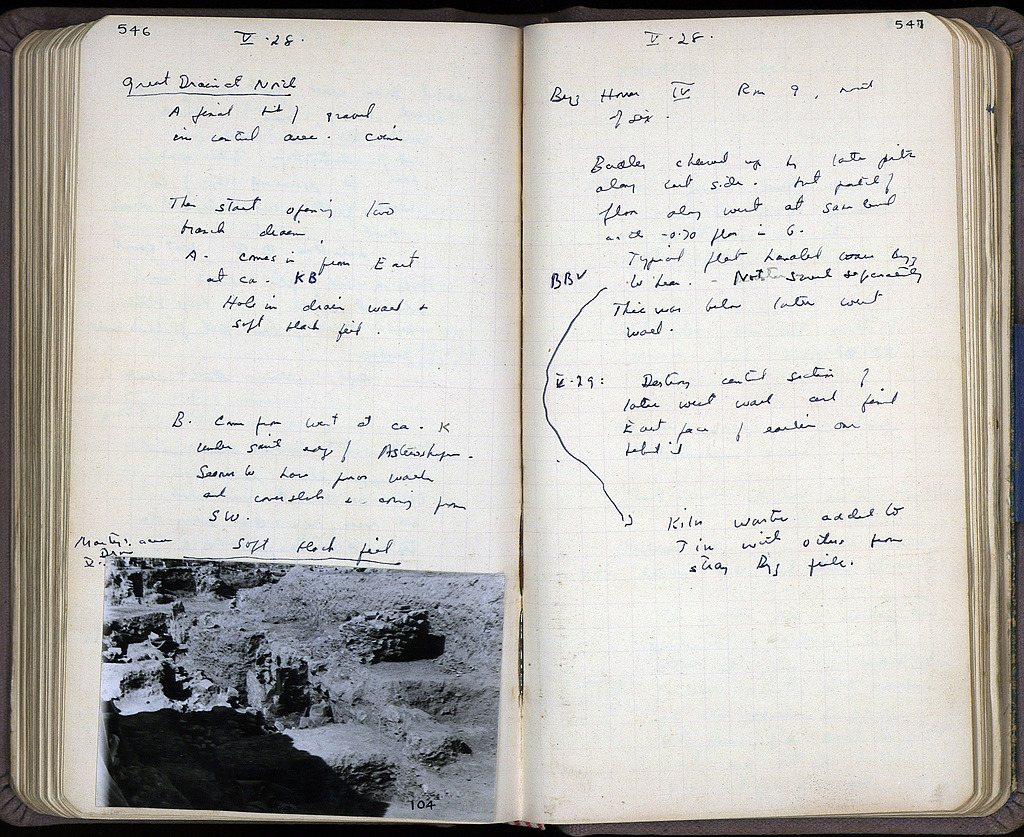 546
V·28·
Great Drain at North
A final bit of gravel
in central area. coin
Then start opening two
branch drains
A. comes in from East
at ca. KB
Hole in drain wall &
soft black fill.
B. Comes from West at ca. K
under south edge of
Seems to have poros walls
and cover slabs & coming from
SW.
Soft black fill
Drain
V.
104
547
V·28·
Byz House IV Rm 9, north
of six.
Badly chewed up by late pits
along east side. but patch of
floor along west at same level
as the -0.70 floor in 6.
Typical flat handled ware Byz
BB✓
to here. - Not saved separately
This was below later west
wall.
V·29: Destroy central section of
later west wall and find
East face of earlier one
behind it
Kiln waster added to
Tin with others from
stray Byz fill.